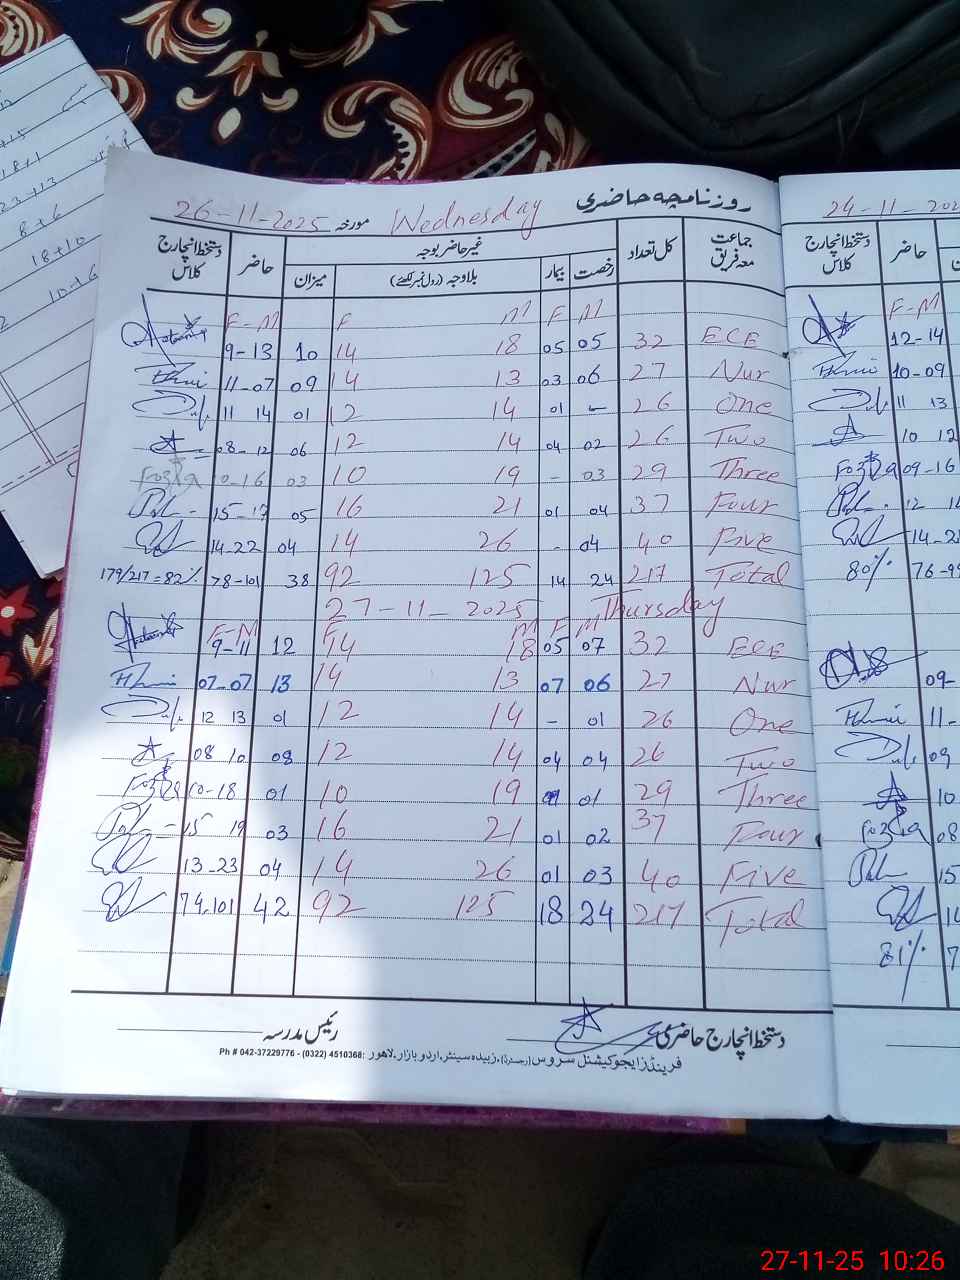 روزنامچہ حاضری Wednesday مورخہ 26-11-2025
جماعت معہ فریق کل تعداد غیر حاضر بوجہ حاضر دستخط انچارج کلاس
رخصت بیمار بلاوجہ (رول نمبر لکھئے) میزان
M F M F F-M
ECE 32 05 05 18 14 10 9-13
Nur 27 06 03 13 14 09 11-07
One 26 - 01 14 12 01 11 14
Two 26 02 04 14 12 06 08-12
Three 29 03 - 19 10 03 10-16 Fozia
Four 37 04 01 21 16 05 15-17
Five 40 04 - 26 14 04 14-22
Total 217 24 14 125 92 38 78-101 179/217=82%
Thursday 27-11-2025
M F M F F-M
ECE 32 07 05 18 14 12 9-11
Nur 27 06 07 13 14 13 07-07
One 26 01 - 14 12 01 12 13
Two 26 04 04 14 12 08 08 10
Three 29 01 19 10 01 10-18 Fozia
Four 37 02 01 21 16 03 15 19
Five 40 03 01 26 14 04 13-23
Total 217 24 18 125 92 42 74.101
دستخط انچارج حاضری رئیس مدرسہ
فرینڈز ایجوکیشنل سروس (رجسٹرڈ)، زبیدہ سینٹر، اردو بازار، لاہور Ph # 042-37229776 - (0322) 4510368:
24-11-202
دستخط انچارج کلاس
حاضر
F-M
12-14
10-09
11 13
10 12
Fozia 09-16
12
14-2
80% 76-9
09-
11-
09
10
Fozia 08
15
14
81% 7
18+1
23+13
8+6
18+10
10+6
27-11-25 10:26